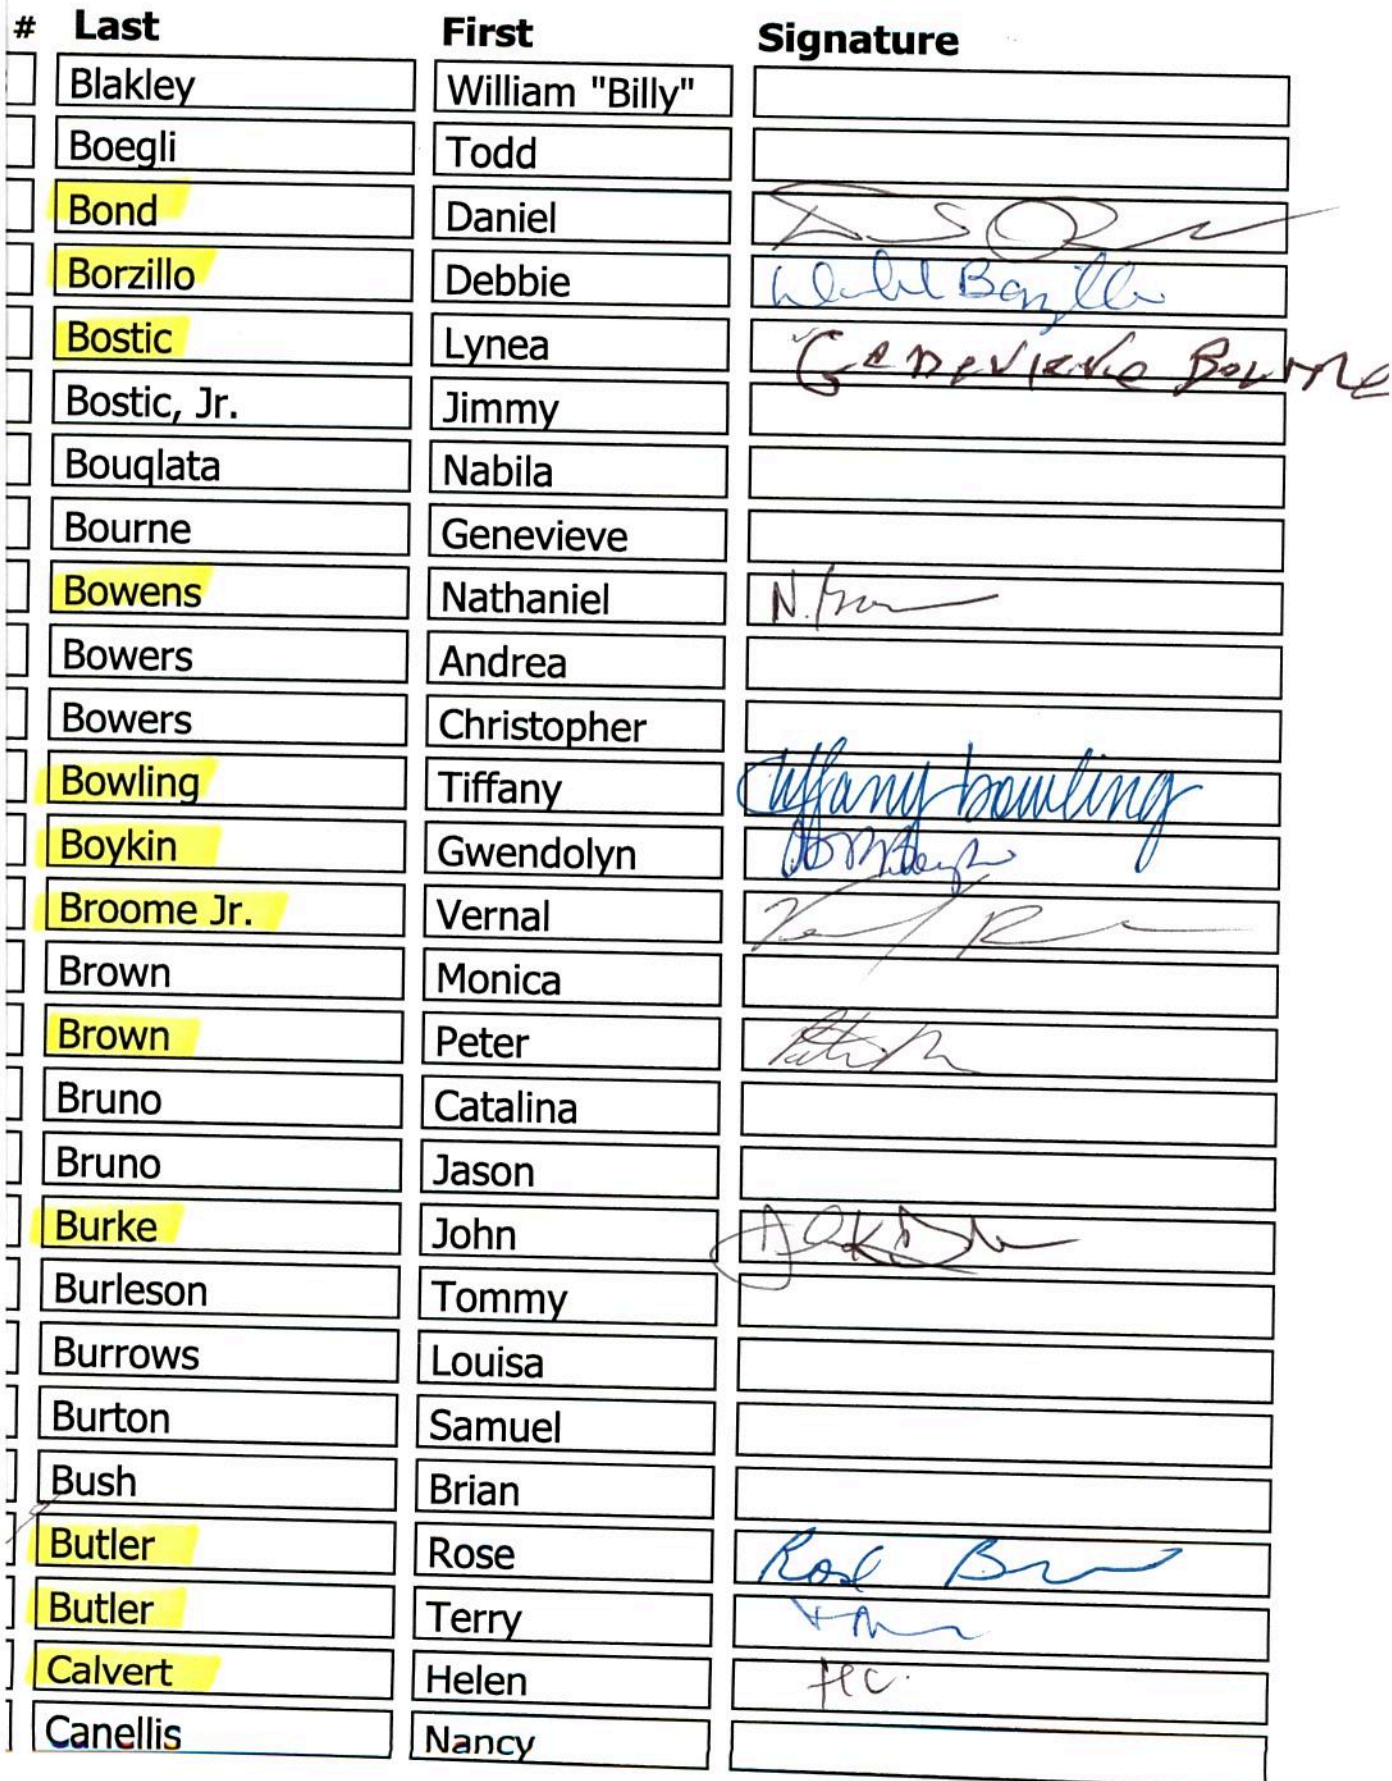 # Last First Signature
Blakley William "Billy"
Boegli Todd
Bond Daniel
Borzillo Debbie
Bostic Lynea Genevieve Bourne
Bostic, Jr. Jimmy
Bouqlata Nabila
Bourne Genevieve
Bowens Nathaniel N.
Bowers Andrea
Bowers Christopher
Bowling Tiffany Tiffany bowling
Boykin Gwendolyn
Broome Jr. Vernal
Brown Monica
Brown Peter
Bruno Catalina
Bruno Jason
Burke John
Burleson Tommy
Burrows Louisa
Burton Samuel
Bush Brian
Butler Rose Rose
Butler Terry
Calvert Helen HC.
Canellis Nancy